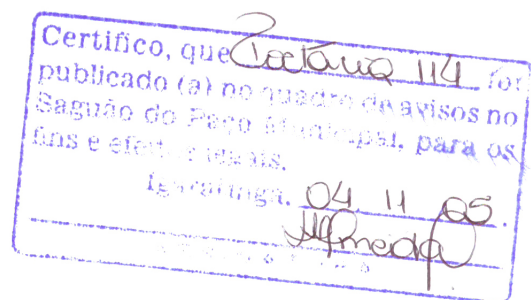 Certifico, que Portaria 114 foi
publicado (a) no quadro de avisos no
Saguão do Paço Municipal, para os
fins e efeitos legais.
Igaratinga, 04 11 05.
Almeida